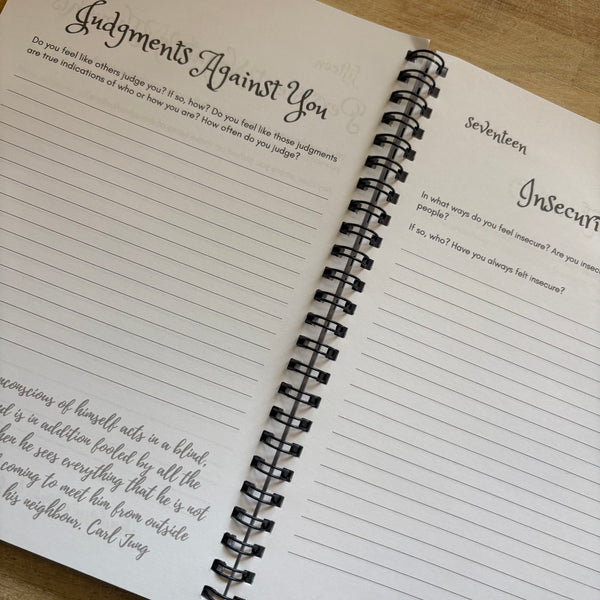 Judgments Against You
Do you feel like others judge you? If so, how? Do you feel like those judgments
are true indications of who or how you are? How often do you judge?
nconscious of himself acts in a blind,
d is in addition fooled by all the
hen he sees everything that he is not
coming to meet him from outside
his neighbour. Carl Jung
seventeen
Insecuri
In what ways do you feel insecure? Are you insec
people?
If so, who? Have you always felt insecure?